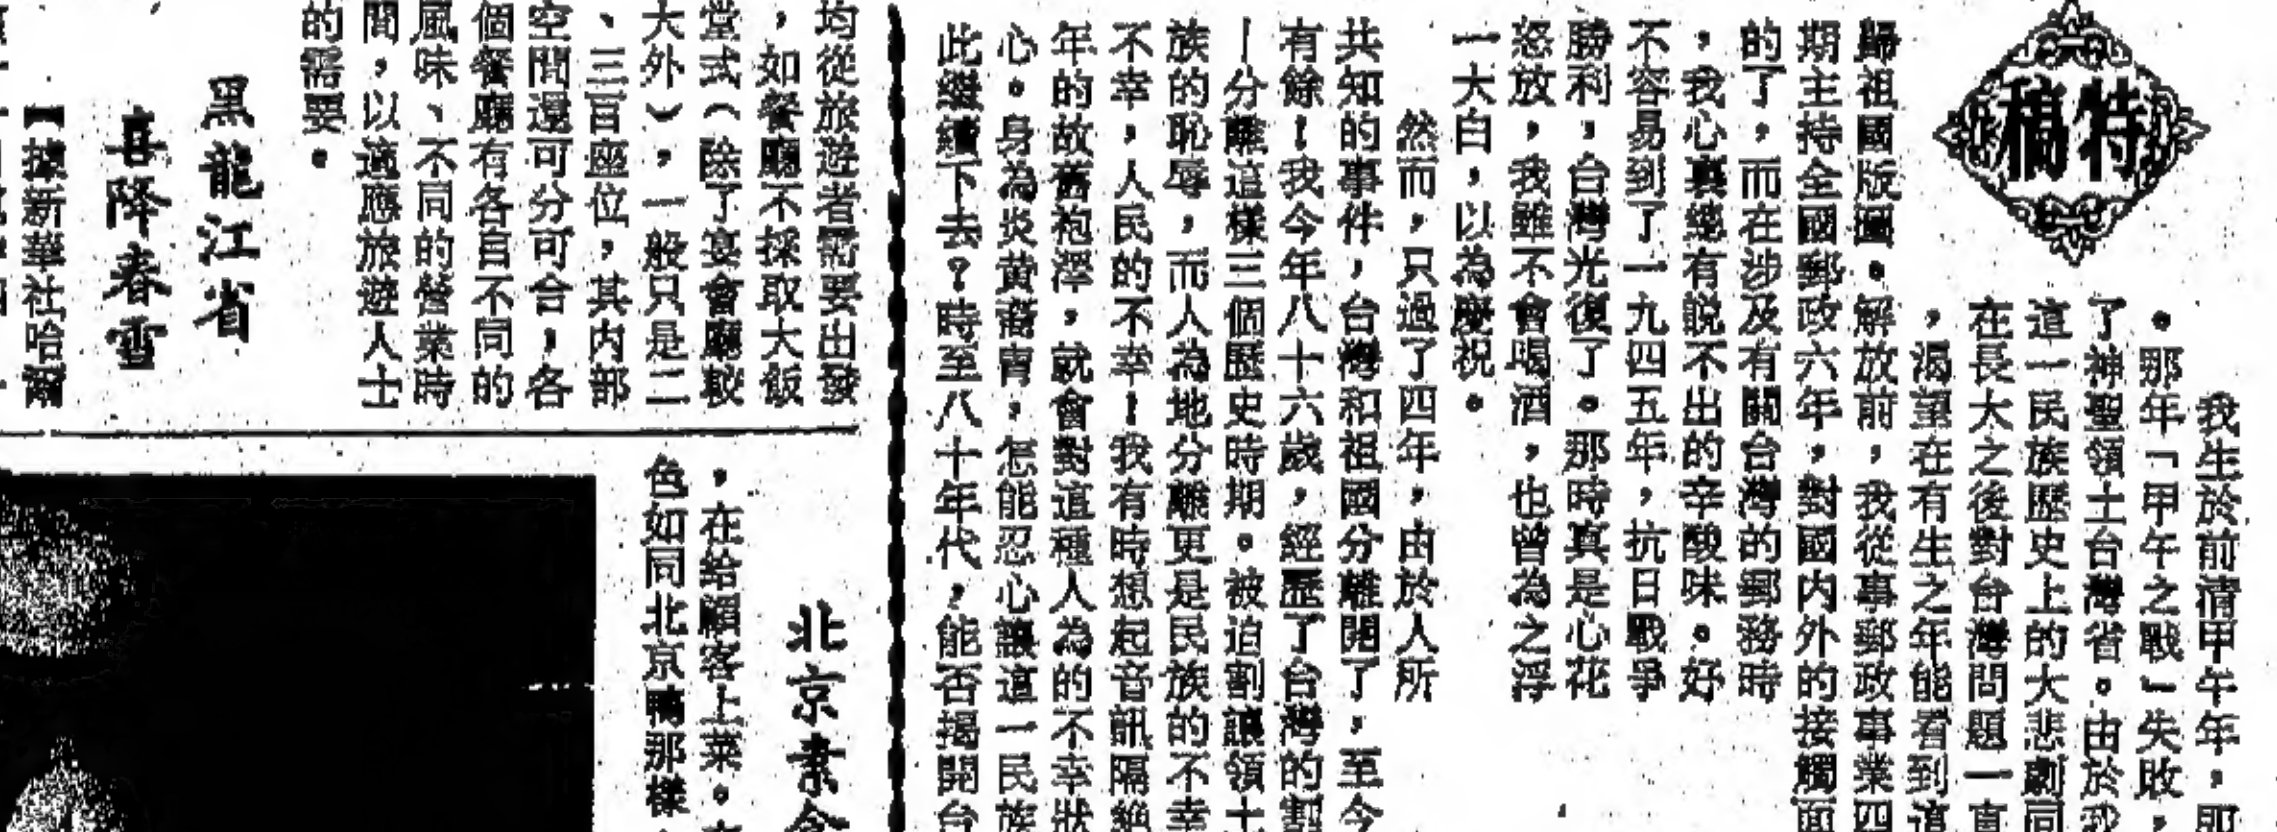 特稿
我生於前清甲午年，即
。那年「甲午之戰」失敗，
了神聖領土台灣省。由於我
這一民族歷史上的大悲劇同
在長大之後對台灣問題一直
，渴望在有生之年能看到這
歸祖國版圖。解放前，我從事郵政事業四
期主持全國郵政六年，對國內外的接觸面
的了，而在涉及有關台灣的郵務時
，我心裏總有説不出的辛酸味。好
不容易到了一九四五年，抗日戰爭
勝利，台灣光復了。那時真是心花
怒放，我雖不會喝酒，也曾為之浮
一大白，以為慶祝。
然而，只過了四年，由於人所
共知的事件，台灣和祖國分離開了，至今
有餘！我今年八十六歲，經歷了台灣的割
—分離這樣三個歷史時期。被迫割讓領土
族的恥辱，而人為地分離更是民族的不幸
不幸，人民的不幸！我有時想起音訊隔絕
年的故舊袍澤，就會對這種人為的不幸狀
心。身為炎黄裔胄，怎能忍心讓這一民族
此繼續下去？時至八十年代，能否揭開台
均從旅遊者需要出發
，如餐廳不採取大飯
堂式（除了宴會廳較
大外），一般只是二
、三百座位，其內部
空間還可分可合，各
個餐廳有各自不同的
風味、不同的營業時
間，以適應旅遊人士
的需要。
黑龍江省
喜降春雪
【據新華社哈爾
北京素
，在給顧客上菜。
色如同北京鴨那樣